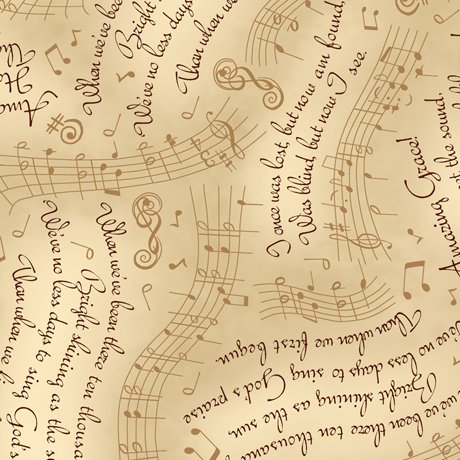 When we've bee
Bright
We've no less days
Than when w
I once was lost, but now am found,
Was blind, but now I see.
Amazing Grace!
t the sound,
When we've been there ten thousa
Bright shining as the su
We've no less days to sing God's
Than when we fi
we've been there ten thousand
Bright shining as the sun.
ve no less days to sing God's praise
Than when we first begun.